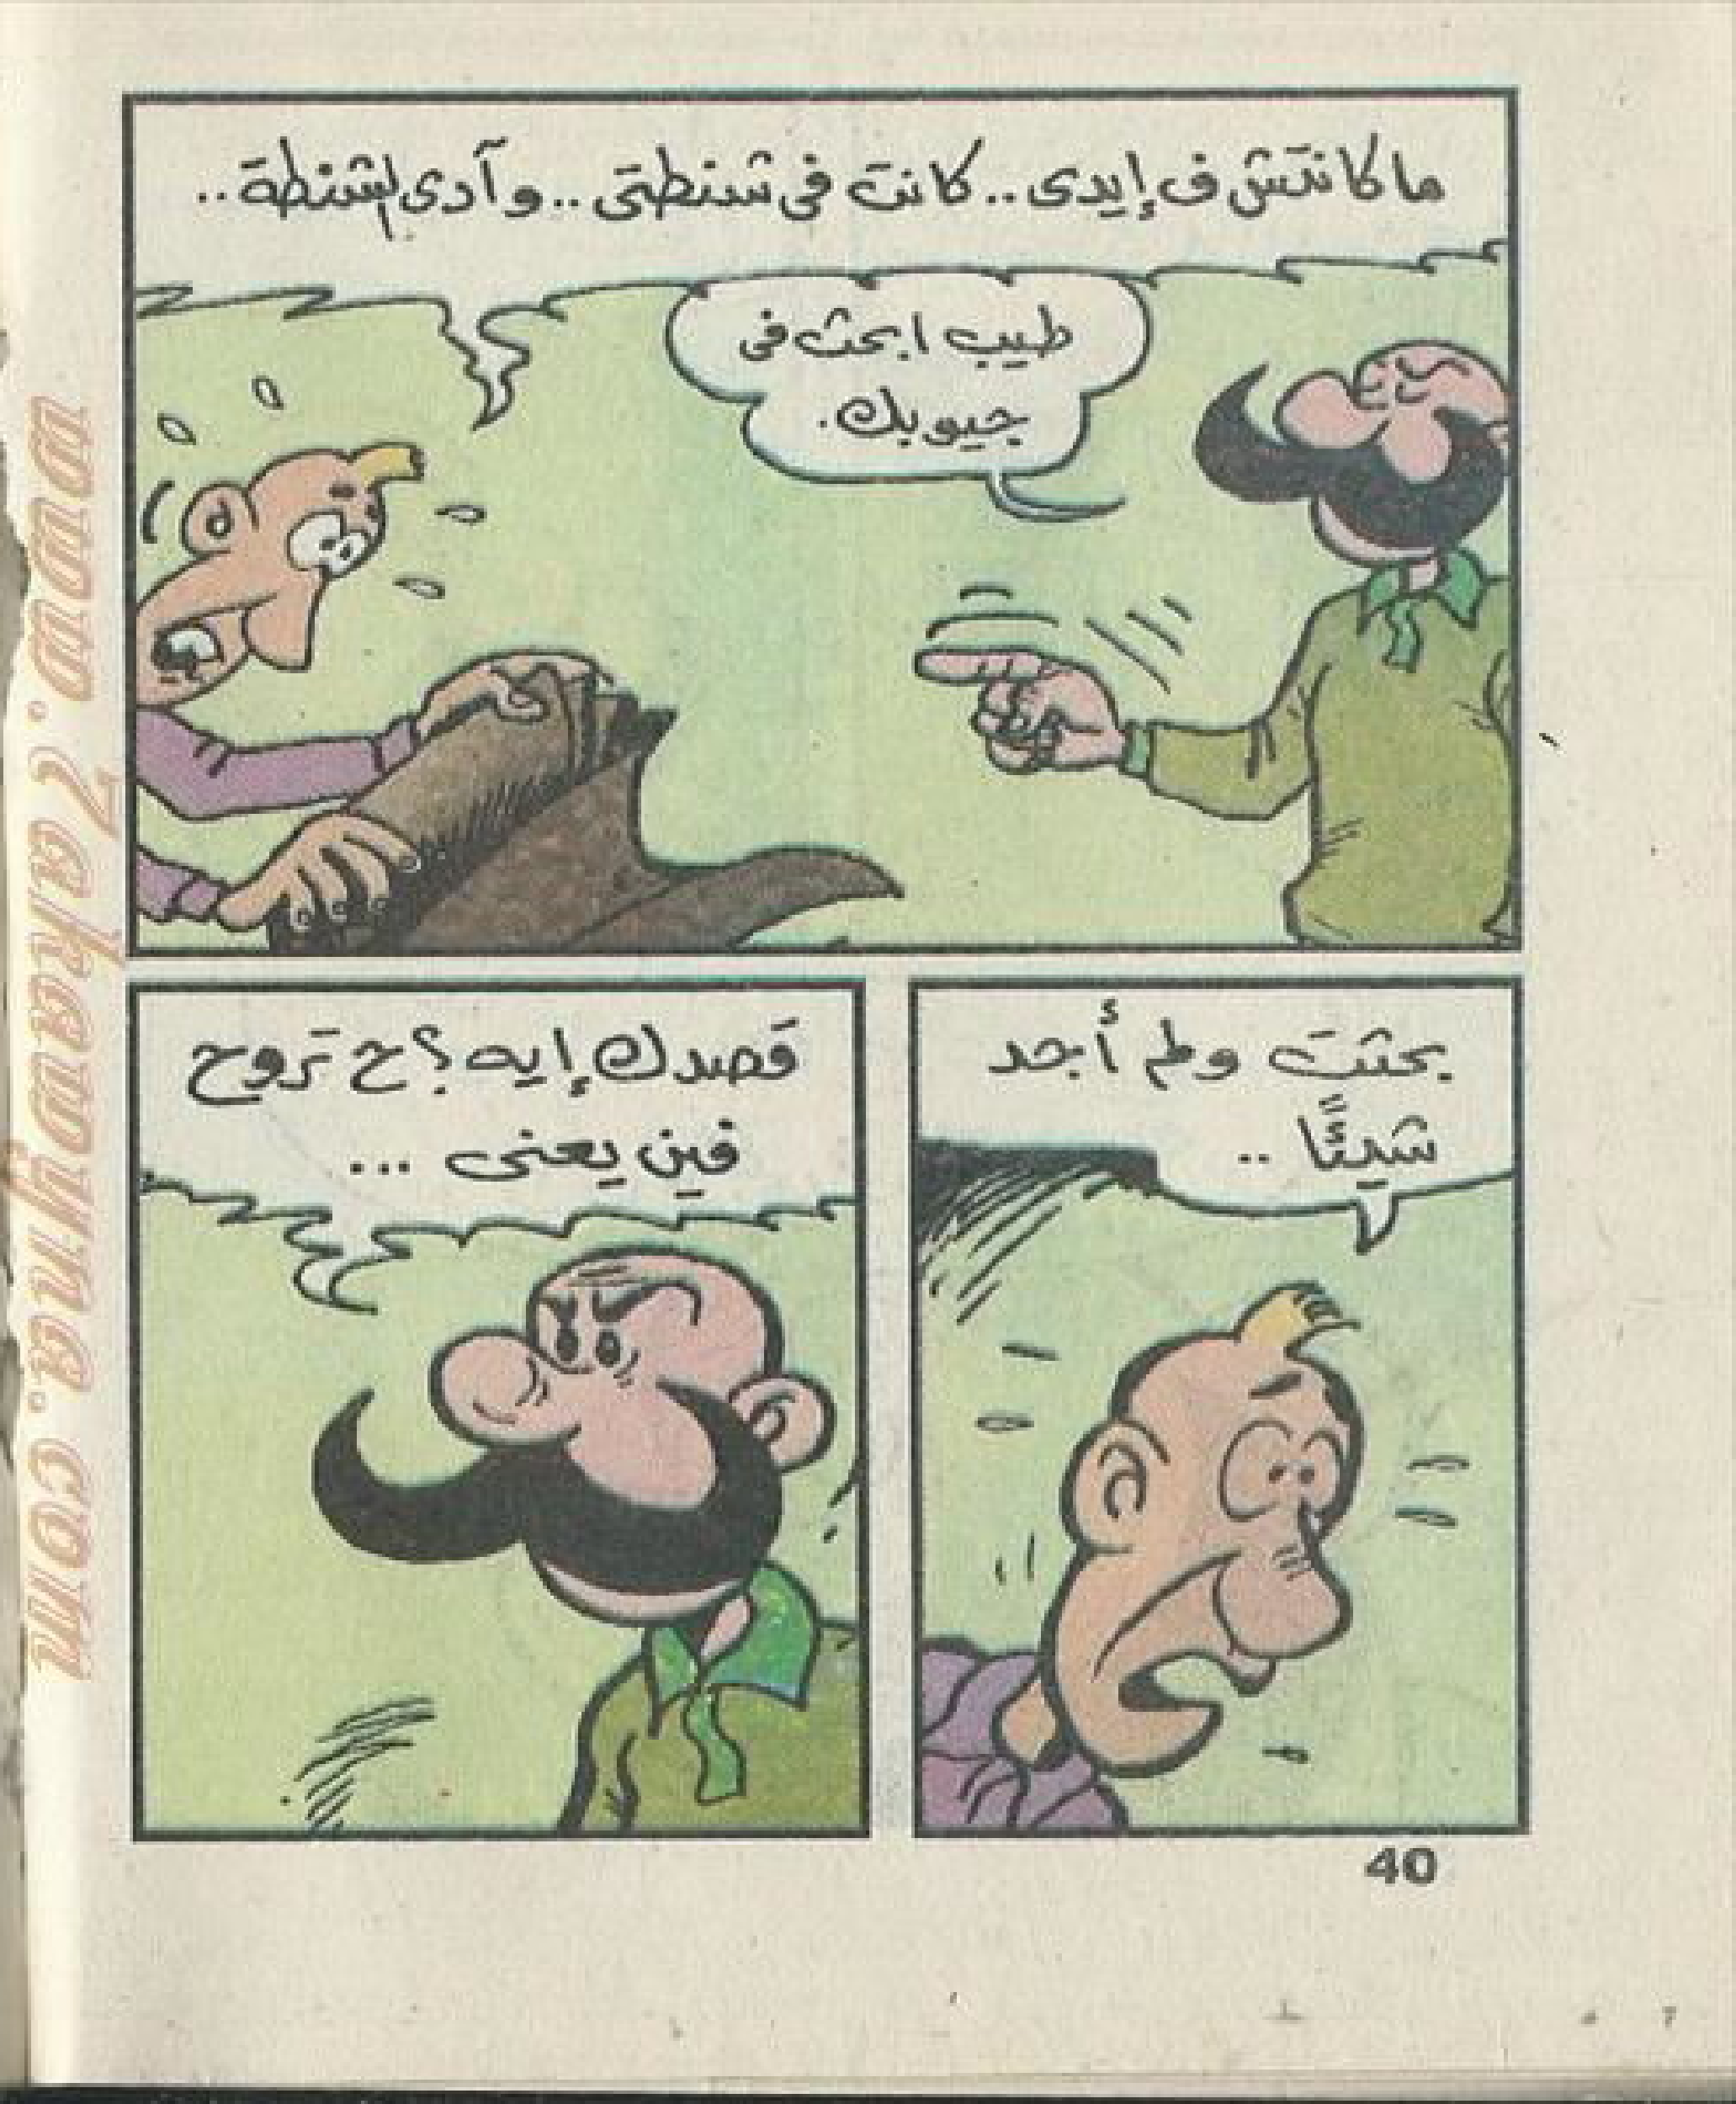 ما كانتش ف إيدى.. كانت فى شنطتى.. و آدى الشنطة..
طيب ابحث فى
جيوبك.
بحثت ولم أجد
شيئًا ..
قَصدك إيه؟ ح تَروح
فين يعنى ...
40
www.7akawyna.com